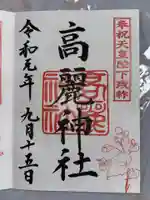 奉祝天皇陛下御即位
高麗神社
令和元年 九月十五日